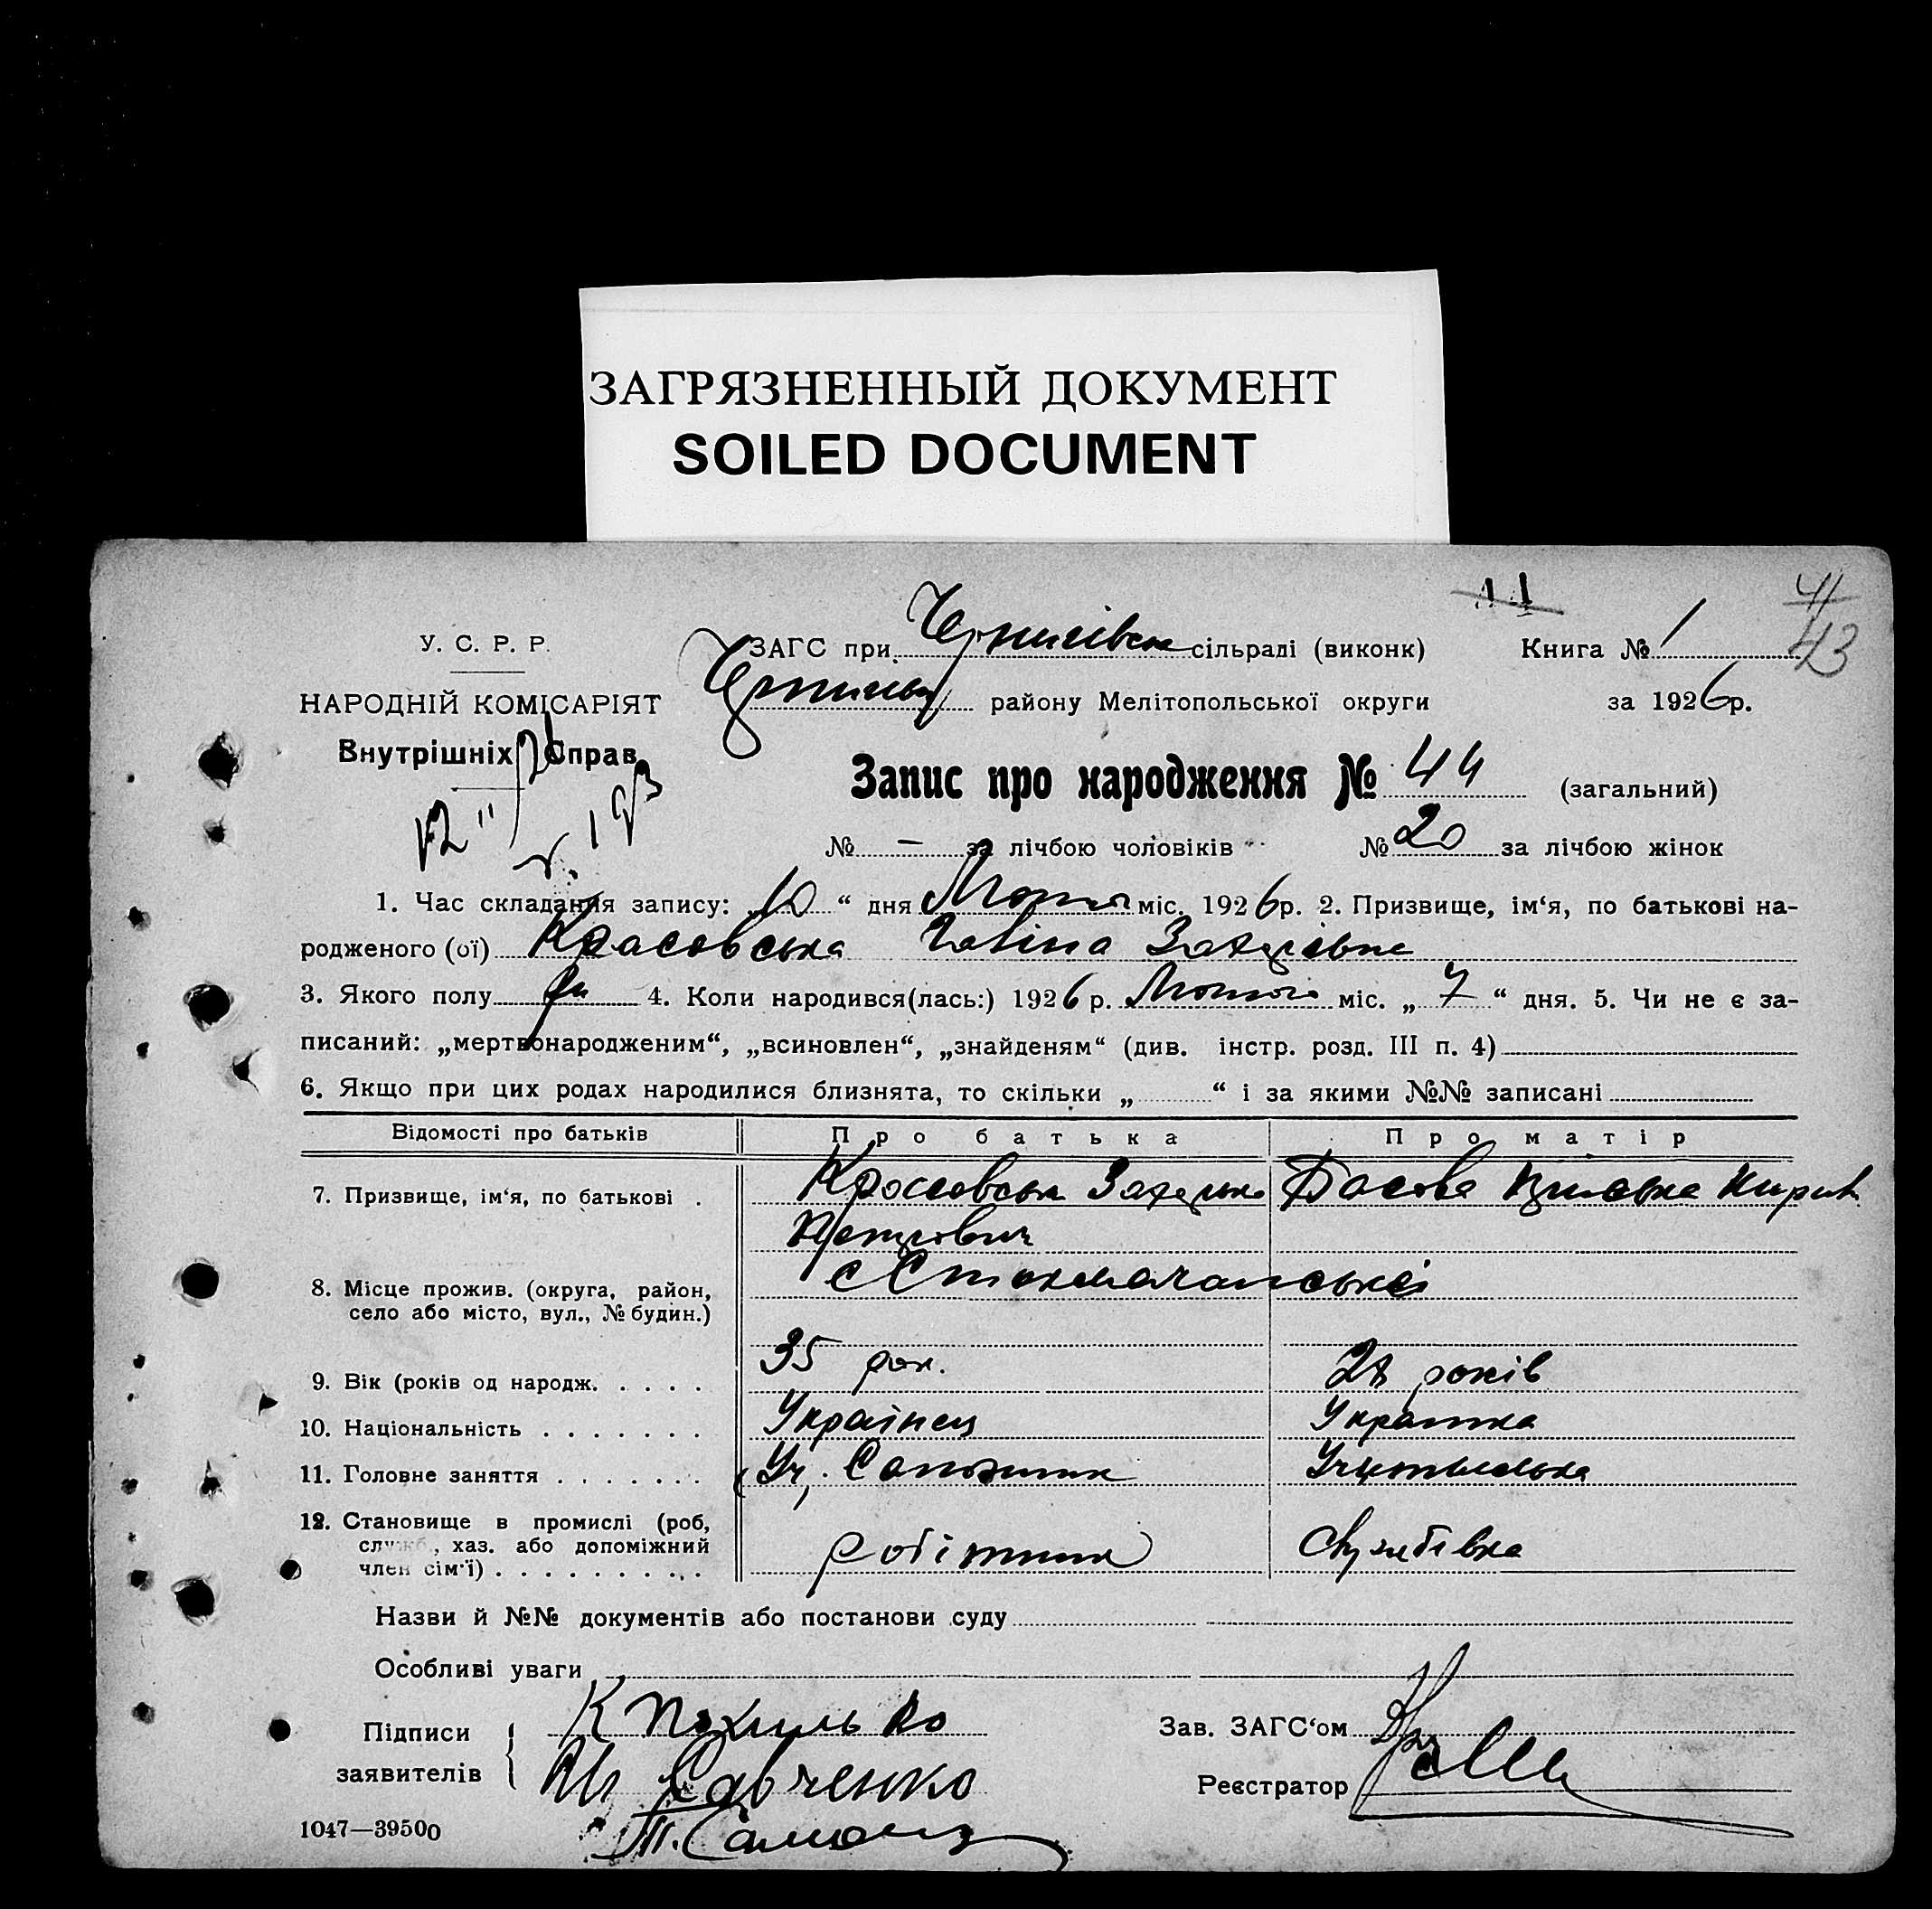 ЗАГРЯЗНЕННЫЙ ДОКУМЕНТ
SOILED DOCUMENT
11
41
43
У. С. Р. Р.
ЗАГС при Чернигівськ сільраді (виконк)
Книга № 1
НАРОДНІЙ КОМІСАРІЯТ
району Мелітопольської округи
за 1926р.
Внутрішніх Справ
Запис про народження № 44 (загальний)
№ — за лічбою чоловіків № 20 за лічбою жінок
1. Час складання запису: „10“ дня Лютого міс. 1926р. 2. Призвище, ім‘я, по батькові на-
родженого (ої) Красовська Галіна Захарівна
3. Якого полу 4. Коли народився(лась:) 1926р. Лютого міс. „7“ дня. 5. Чи не є за-
писаний: „мертвонародженим“, „всиновлен“, „знайденям“ (див. інстр. розд. III п. 4)
6. Якщо при цих родах народилися близнята, то скільки „ “ і за якими №№ записані
Відомості про батьків Про батька Про матір
7. Призвище, ім‘я, по батькові .
Петрович
8. Місце прожив. (округа, район,
село або місто, вул., № будин.)
35 рок.
9. Вік (років од народж. . . . . років
10. Національність . . . . . . . Українец Украинка
11. Головне заняття . . . . . . . Сапожник Учительська
12. Становище в промислі (роб,
служб., хаз. або допоміжний
член сім‘ї) . . . . . . . . . . робітник службівка
Назви й №№ документів або постанови суду
Особливі уваги
Підписи
заявителів
К Похилько
Савченко
Зав. ЗАГС‘ом
Реєстратор
1047—39500